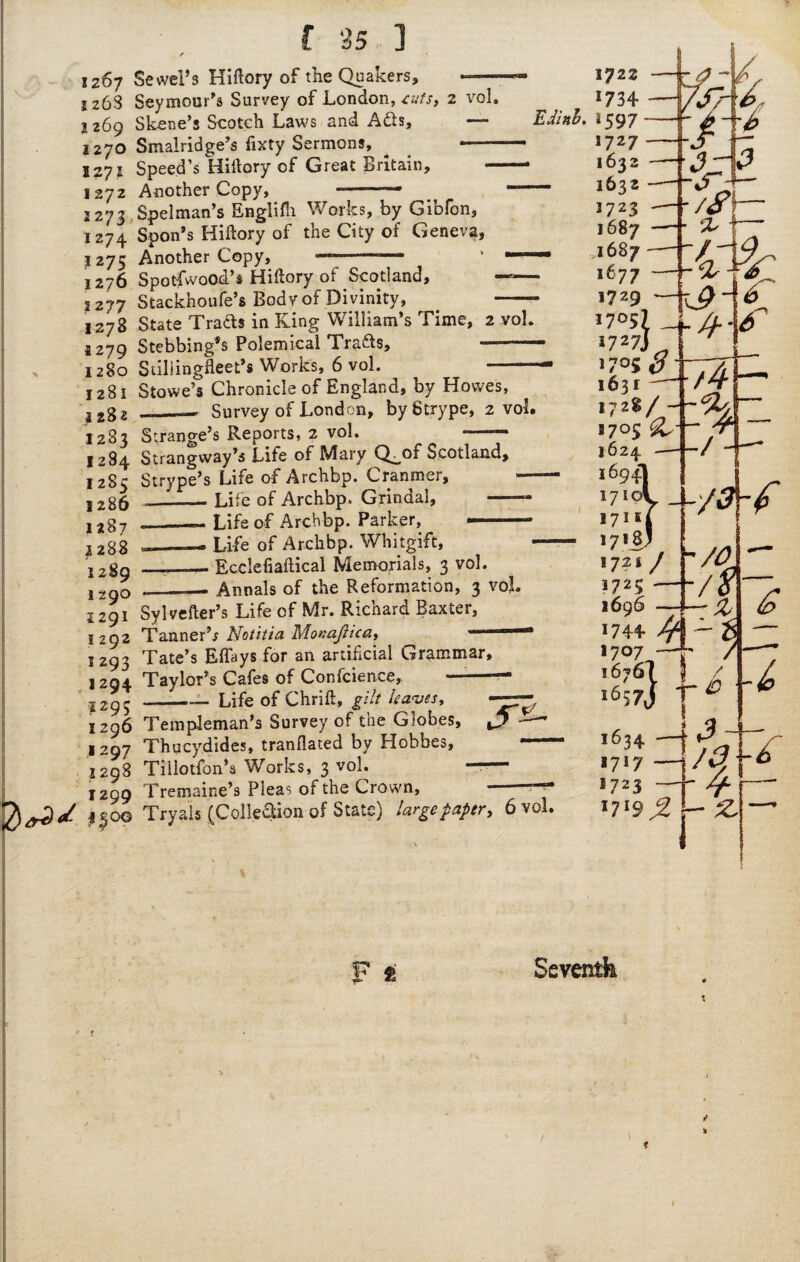 [ 35 ]
1267 Sewel's Hiſtory of the Quakers, —— 1722 — 9 - 6
1268 Seymour's Survey of London, cuts, 2 vol. 1734 — 15 - 6
1269 Skene's Scotch Laws and Acts, — Edinb. 1597 — 6 - 6
1270 Smalridge's ſixty Sermons, —— 1727 — 5 —
1271 Speed's Hiſtory of Great Britain, —— 1632 — 3 - 3
1272 Another Copy, —— —— 1632 — 5 —
1273 Spelman's Engliſh Works, by Gibſon, 1723 — 18 —
1274 Spon's History of the City of Geneva, 1687 — 2 —
1275 Another Copy, —— —— 1687 — 1 - 9
1276 Spotſwood's Hiſtory of Scotland, —— 1677 — 2 - 6
1277 Stackhouſe's Body of Divinity, —— 1729 — 9 - 6
1278 State Tracts in King William's Time, 2 vol. 1705
1279 Stebbing's Polemical Tracts, —— 1727 } 4 - 6
1280 Stillingfleet's Works, 6 vol. —— 1705 3
1281 Stowe's Chronicle of England, by Howes, 1631 — 14 —
1282 —— Survey of London, by Strype, 2 vol. 1728 / - 2 —
1283 Strange's Reports, 2 vol. —— 1705 2 - 4 —
1284 Strangway's Life of Mary Q. of Scotland, 1624 — 1 —
1285 Strype's Life of Archbp. Cranmer, —— 1694
1286 —— Life of Archbp. Grindal, —— 1710
1287 —— Life of Archbp. Parker, —— 1711
1288 —— Life of Archbp. Whitgift, —— 1718 } 13 - 6
1289 —— Eccleſiaſtical Memorials, 3 vol. 1721 / 10 —
1290 —— Annals of the Reformation, 3 vol. 1725 — 18 —
1291 Sylveſter's Life of Mr. Richard Baxter, 1696 — 2 6
1292 Tanner's Notitia Monaſtica, —— 1744 4 - 8 —
1293 Tate's Eſſays for an artificial Grammar, 1707 — 1 —
1294 Taylor's Caſes of Conſcience, —— 1676
1295 —— Life of Chriſt, gilt leaves, —— 1657 } 6 - 6
1296 Templeman's Survey of the Globes, 5 —
1297 Thucydides, tranſlated by Hobbes, —— 1634 — 3 —
1298 Tillotſon's Works, 3 vol. —— 1717 — 13 - 6
1299 Tremaine's Pleas of the Crown, —— 1723 — 4 —
1300 Tryals (Collection of State) large paper, 6 vol. 1719 2 - 2 —
F 2 Seventh